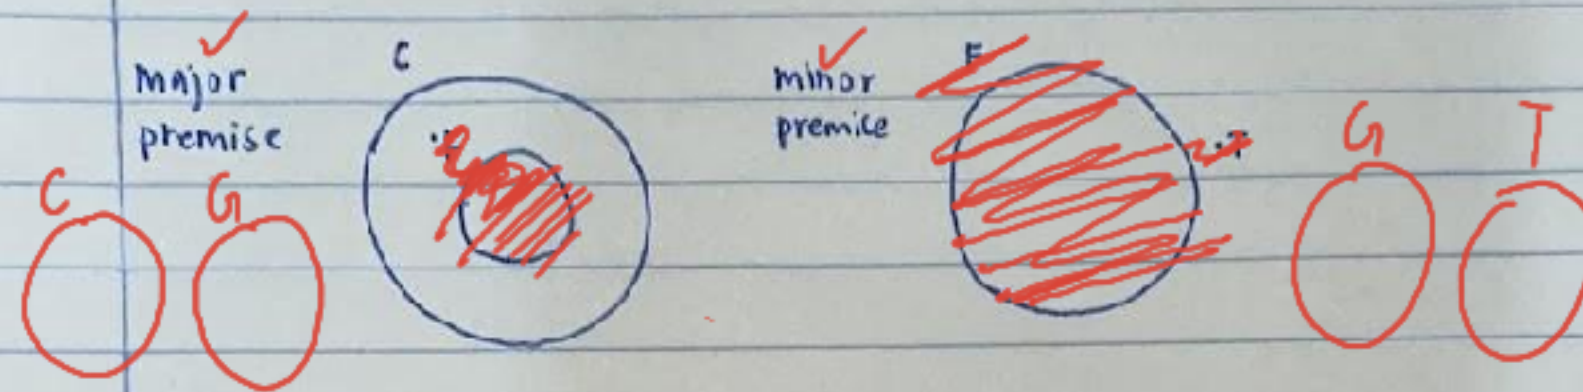 C
major
premise
C G
minor
premice
G T